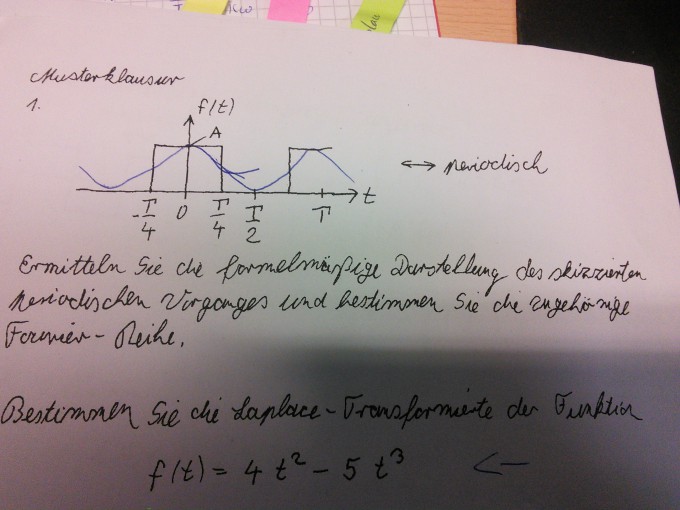 Musterklausur
1.
f(t)
A
↔ periodisch
-T/4 0 T/4 T/2 T t
Ermitteln Sie die formelmäßige Darstellung des skizzierten
periodischen Vorganges und bestimmen Sie die zugehörige
Fourier-Reihe.
Bestimmen Sie die Laplace-Transformierte der Funktion
f(t) = 4 t² - 5 t³ ←